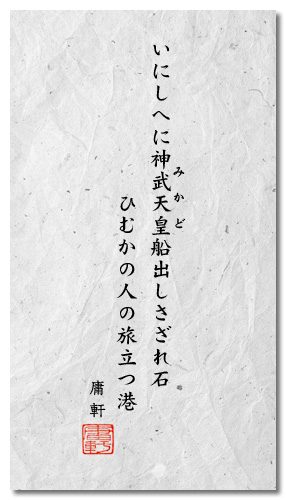 いにしへに神武天皇船出しさざれ石
みかど
ひむかの人の旅立つ港
庸軒